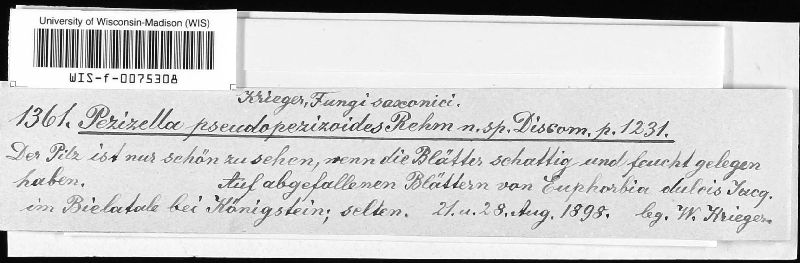 University of Wisconsin-Madison (WIS)
WIS-f-0075308
Krieger, Fungi saxonici.
1361. Pezizella pseudopezizoides Rehm n. sp. Discom. p. 1231.
Der Pilz ist nur schön zu sehen, wenn die Blätter schattig und feucht gelegen
haben. Auf abgefallenen Blättern von Euphorbia dulcis Jacq.
im Bielatale bei Königstein; selten. 21. u. 28. Aug. 1898. leg. W. Krieger.